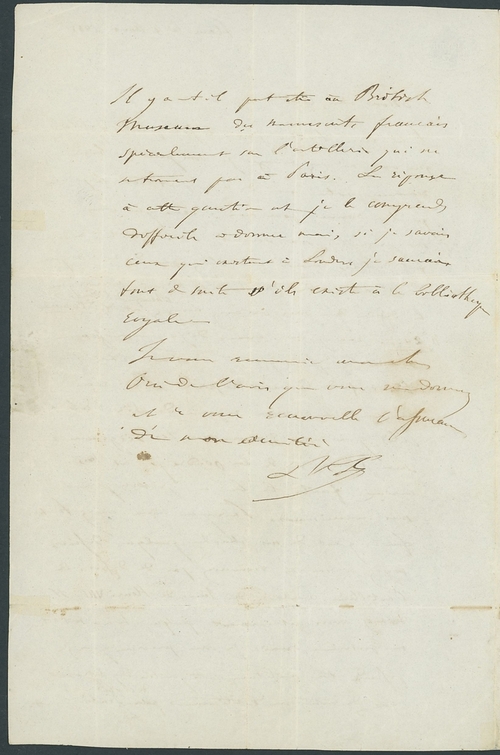 Il y a t il peut etre au British
Museum des manuscrits français
spécialement sur l'artillerie qui ne
se trouvent pas à Paris. La réponse
à cette question est je le comprends
difficile à donner mais, si je savais
ceux qui existent à Londres je saurais
tout de suite s'ils existe à la bibliothèque
royale
Je vous remercie
de l'avis que vous me donnez
et je vous renouvelle l'assurance
de mon amitié